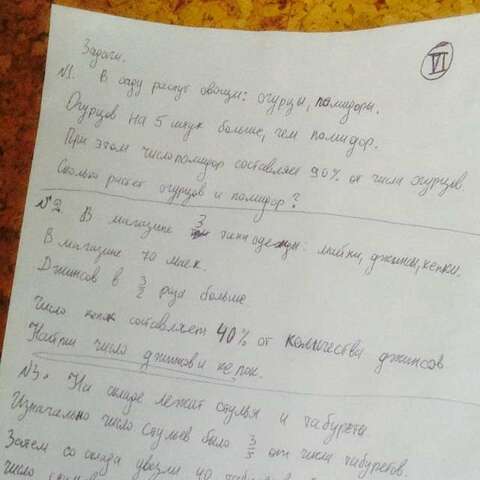 Задачи.
VI
№1. В саду растут овощи: огурцы, помидоры.
Огурцов на 5 штук больше, чем помидор.
При этом число помидор составляет 90% от числа огурцов.
Сколько растет огурцов и помидор?
№2. В магазине 3 типа одежды: майки, джинсы, кепки.
В магазине 70 маек.
Джинсов в 3/2 раза больше.
Число кепок составляет 40% от количества джинсов
Найти число джинсов и кепок.
№3. На складе лежат стулья и табуреты
Изначально число стульев было 3/5 от числа табуретов.
Затем со склада увезли 40
число